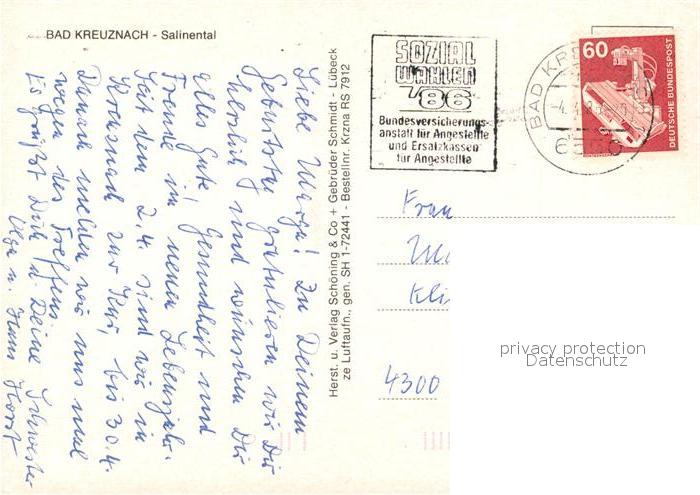 BAD KREUZNACH - Salinental
Liebe Marga! Zu Deinem
Geburtstag gratulieren wir Dir
herzlich und wünschen Dir
alles Gute, Gesundheit und
Freude im neuen Lebensjahr.
Seit dem 2.4. sind wir in
Kreuznach zur Kur, bis 30.4.
Danach melden wir uns mal
wegen des Treffens
Es grüßt Dich u. Deine Schwester
u. Hans Horst
Herst. u. Verlag Schöning & Co + Gebrüder Schmidt - Lübeck
ze Luftaufn., gen. SH 1-72441 - Bestellnr. Krzna RS 7912
SOZIAL
WAHLEN
'86
Bundesversicherungs-
anstalt für Angestellte
und Ersatzkassen
für Angestellte
BAD KR
6550
60
DEUTSCHE BUNDESPOST
Frau
4300
privacy protection
Datenschutz